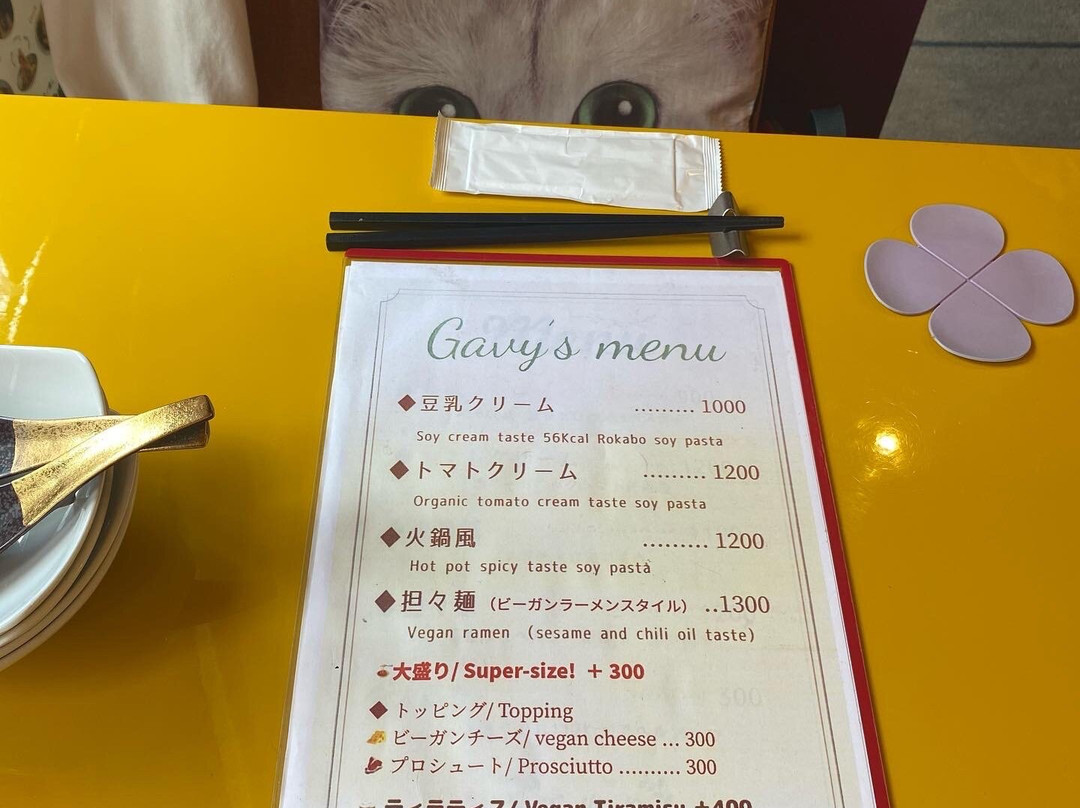 Gavy's menu
◆豆乳クリーム ......... 1000
Soy cream taste 56Kcal Rokabo soy pasta
◆トマトクリーム ......... 1200
Organic tomato cream taste soy pasta
◆火鍋風 ......... 1200
Hot pot spicy taste soy pasta
◆担々麺 (ビーガンラーメンスタイル) ..1300
Vegan ramen (sesame and chili oil taste)
大盛り/ Super-size! + 300
◆トッピング/ Topping
ビーガンチーズ/ vegan cheese ... 300
プロシュート/ Prosciutto .......... 300
Vegan Tiramisu +400